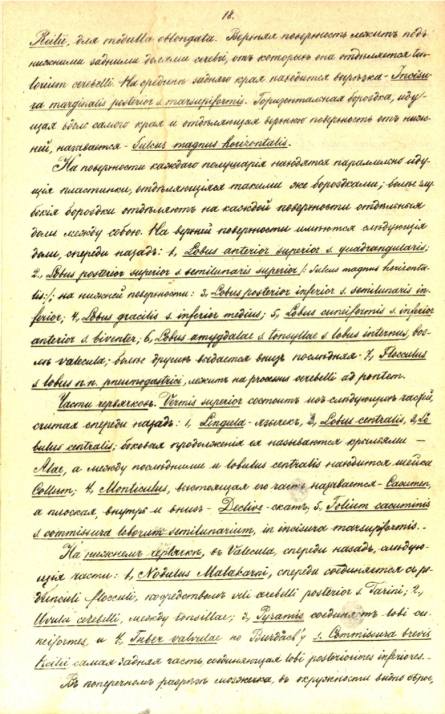 18.
Reilii, для medulla oblongata. Верхняя поверхность лежитъ подъ
нижними задними долями cerebri, отъ которыхъ она отдѣляется ten-
torium cerebelli. На срединѣ задняго края находится вырѣзка - Incisu-
ra marginalis posterior s. marsupiformis. Горизонтальная бороздка, иду-
щая вдоль самого края и отдѣляющая верхнюю поверхность отъ ниж-
ней, называется - Sulcus magnus horizontalis.
На поверхности каждаго полушарія находятся параллельно иду-
щія пластинки, отдѣляющіяся такими же бороздками; болѣе глу-
бокія бороздки отдѣляютъ на каждой поверхности отдѣльныя
доли между собою. На верхней поверхности имѣются слѣдующія
доли, спереди назадъ: 1, Lobus anterior superior s. quadrangularis;
2, Lobus posterior superior s. semilunaris superior /: Sulcus magnus horizonta-
lis:/; на нижней поверхности: 3, Lobus posterior inferior s. semilunaris in-
ferior; 4, Lobus gracilis s. inferior medius; 5, Lobus cuneiformis s. inferior
anterior s. biventer; 6, Lobus amygdalae s. tonsillae s. lobus internus, воз-
лѣ valecula; болѣе другихъ выдается внизъ послѣдняя. 7, Flocculus
s. lobus n.n. pneumogastrici, лежитъ на processus cerebelli ad pontem.
Части червячковъ. Vermis superior состоитъ изъ слѣдующихъ частей,
считая спереди назадъ: 1, Lingula - язычекъ, 2, Lobus centralis, 3, Lo-
bulus centralis; боковыя продолженія ея называются крыльями -
Alae, а между послѣдними и lobulus centralis находится шейка
Collum; 4, Monticulus, выстоящая его часть называется - Cacumen,
а плоская, внутрь и внизъ - Declive - скатъ, 5, Folium cacuminis
s. commissura loborum semilunarium, in incisura marsupiformis.
На нижнемъ червячкѣ, въ Valecula, спереди назадъ, слѣду-
ющія части: 1, Nodulus Malacarni, спереди соединяется съ pe-
dunculi flocculi, посредствомъ veli cerebelli posterior s. Tarini; 2,
Uvula cerebelli, между tonsillae; 3, Pyramis соединяетъ lobi cu-
neiformes и 4, Tuber valvulae по Burdach'у s. Commissura brevis
Reilii самая задняя часть соединяющая lobi posteriores inferiores.
Въ поперечномъ разрѣзѣ мозжечка, въ окружности видно сѣрое,